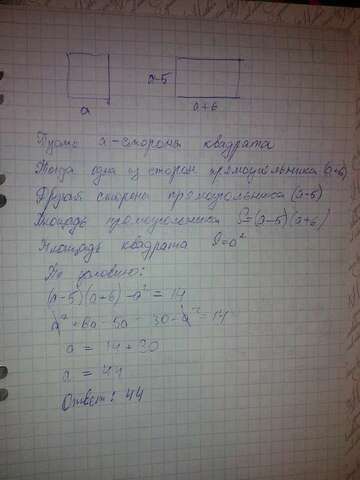 a-5
a
a+6
Пусть a - стороны квадрата
Тогда одна из сторон прямоугольника (a+6)
Другая стороны прямоугольника (a-5)
Площадь прямоугольника S=(a-5)(a+6)
Площадь квадрата S=a²
По условию:
(a-5)(a+6)-a²=14
a²+6a-5a-30-a²=14
a = 14+30
a = 44
Ответ: 44